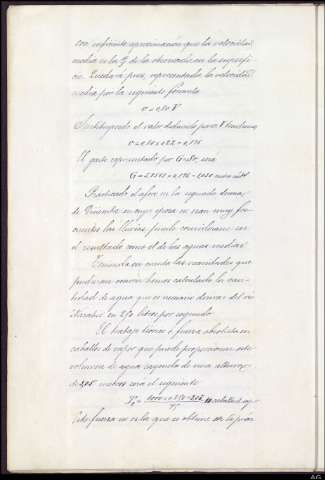 con suficiente aproximación que la velocidad
media es la 4/5 de la observada en la superfi-
cie. Quedará pues, representada la velocidad
media por la siguiente fórmula
v = 0,80 V
Substituyendo el valor obtenido para V tendremos
v = 0,80 x 0,22 = 0,176
El gasto representado por G = Sv, será
Practicado el aforo en la segunda decena
de Diciembre en cuya época no eran muy fre-
cuentes las lluvias, puede considerarse
el resultado como el de las aguas medias.
Teniendo en cuenta las necesidades que
pudieran ocurrir hemos calculado la can-
tidad de agua que es necesario derivar del río
en 250 litros por segundo.
El trabajo teórico ó fuerza absoluta en
caballos de vapor que puede proporcionar este
volumen de agua cayendo de una altura
de 205 metros será el siguiente
Esta fuerza no es la que se obtiene en la prác-